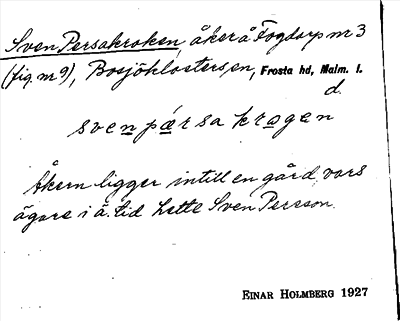 Sven Persakroken, åker å Fogdarp nr 3
(fig. nr 9), Bosjöklosters sn, Frosta hd, Malm. l.
d.
svenpärsa kragen
Åkern ligger intill en gård, vars
ägare i ä. tid hette Sven Persson.
EINAR HOLMBERG 1927